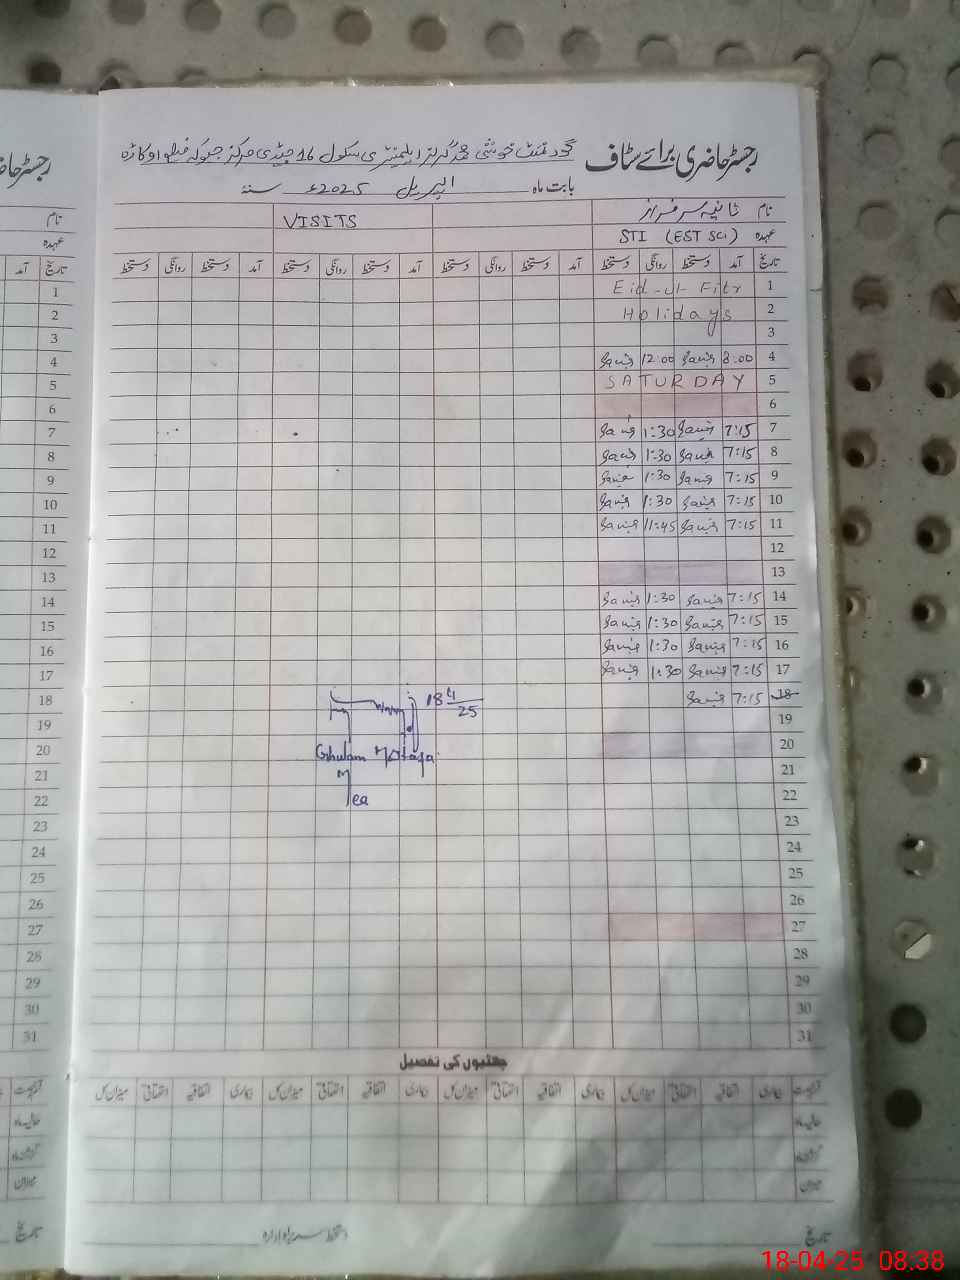 رجسٹر حاضری برائے سٹاف گورنمنٹ خوشی محمد گرلز ایلیمنٹری سکول 16 جیڈی مرکز جبوکہ ضلع اوکاڑہ
بابت ماہ اپریل 2025ء سنۃ
نام ثانیہ سرفراز VISITS
عہدہ STI (EST Sci)
تاریخ آمد دستخط روانگی دستخط آمد دستخط روانگی دستخط آمد دستخط روانگی دستخط
1 Eid-ul-Fitr
2 Holidays
3
4 8:00 Sania 12:00 Sania
5 SATURDAY
6
7 7:15 Sania 1:30 Sania
8 7:15 Sania 1:30 Sania
9 7:15 Sania 1:30 Sania
10 7:15 Sania 1:30 Sania
11 7:15 Sania 11:45 Sania
12
13
14 7:15 Sania 1:30 Sania
15 7:15 Sania 1:30 Sania
16 7:15 Sania 1:30 Sania
17 7:15 Sania 1:30 Sania
18 7:15 Sania
18 4/25
19
20
Ghulam Mustafa
21
22
23
24
25
26
27
28
29
30
31
چھٹیوں کی تفصیل
بیماری اتفاقیہ استحقاقی میزان کل بیماری اتفاقیہ استحقاقی میزان کل بیماری اتفاقیہ استحقاقی میزان کل بیماری اتفاقیہ استحقاقی میزان کل
میزان
تاریخ دستخط سربراہ ادارہ
رجسٹر حاضری
نام
عہدہ
تاریخ آمد
1
2
3
4
5
6
7
8
9
10
11
12
13
14
15
16
17
18
19
20
21
22
23
24
25
26
27
28
29
30
31
میزان
تاریخ
18-04-25 08:38